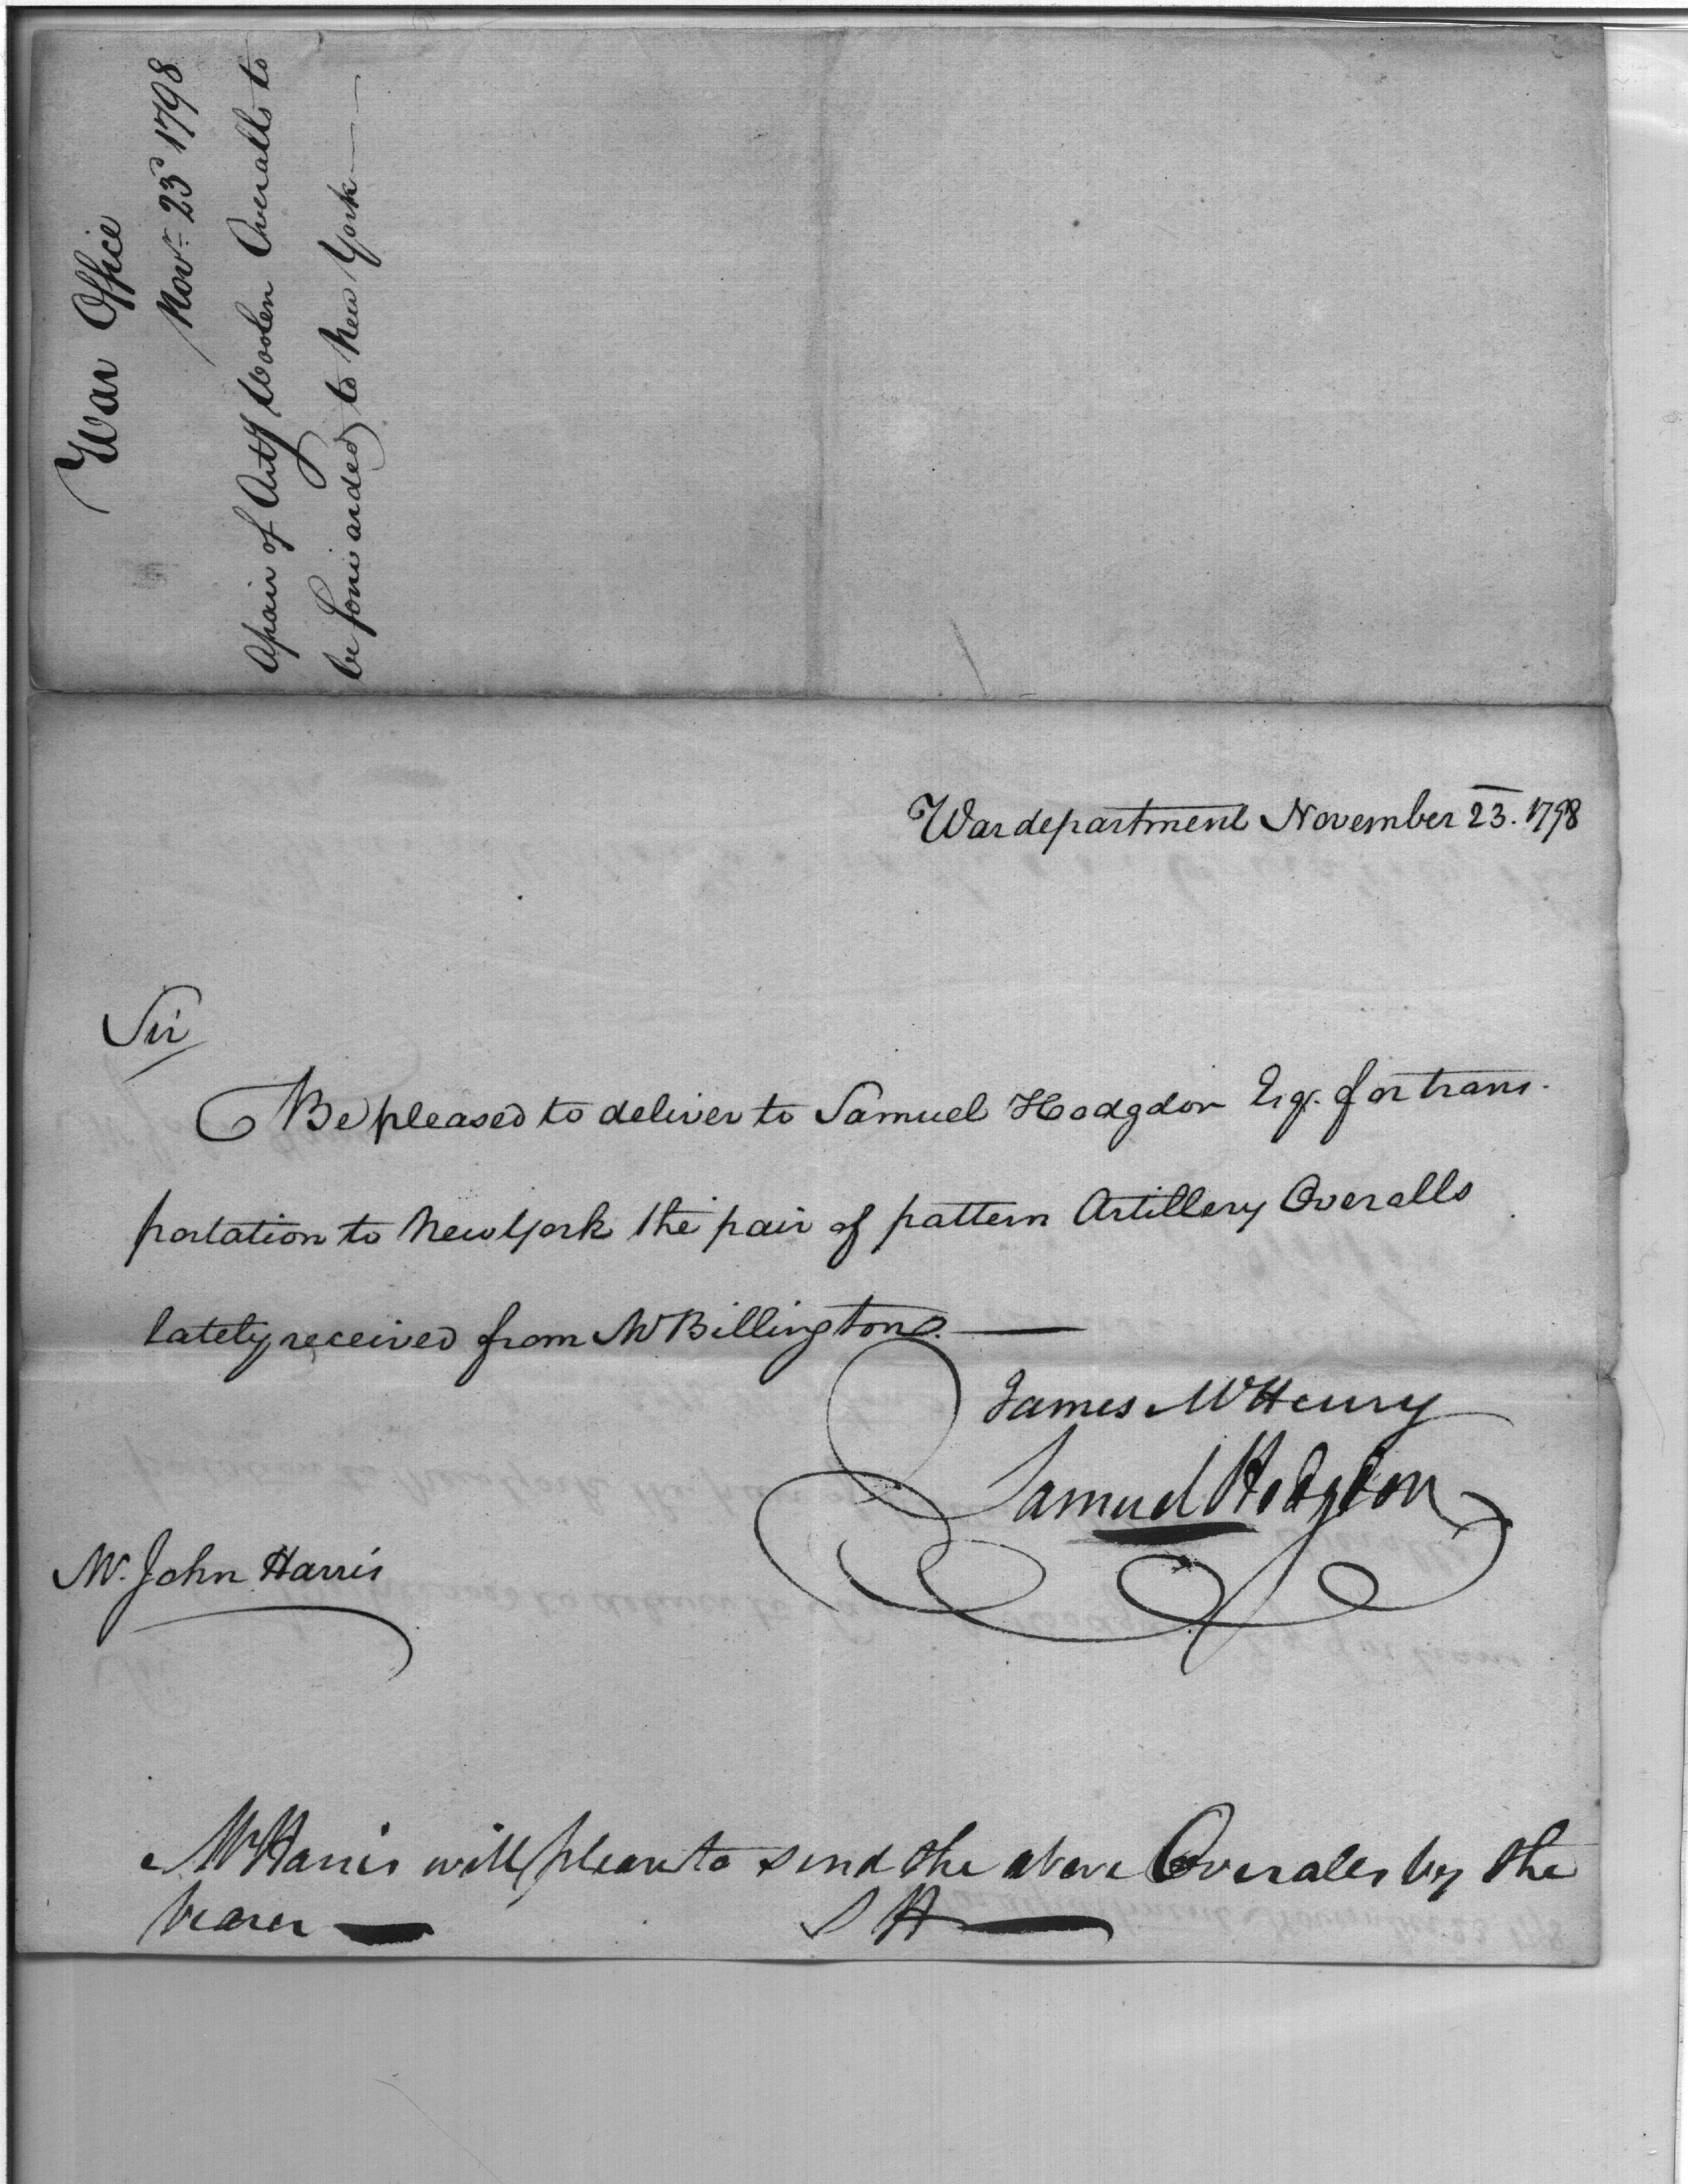 War Office
Novr. 23d 1798
Apair of Arty Woolen Overalls to
be forwarded to New York
War department November 23. 1798
Sir
Be pleased to deliver to Samuel Hodgdon Esqr. for trans-
portation to New York the pair of pattern Artillery Overalls
lately received from Mr Billington.
James McHenry
Samuel Hodgdon
Mr. John Harris
Mr Harris will please to send the above Overalls by the
bearer
S H